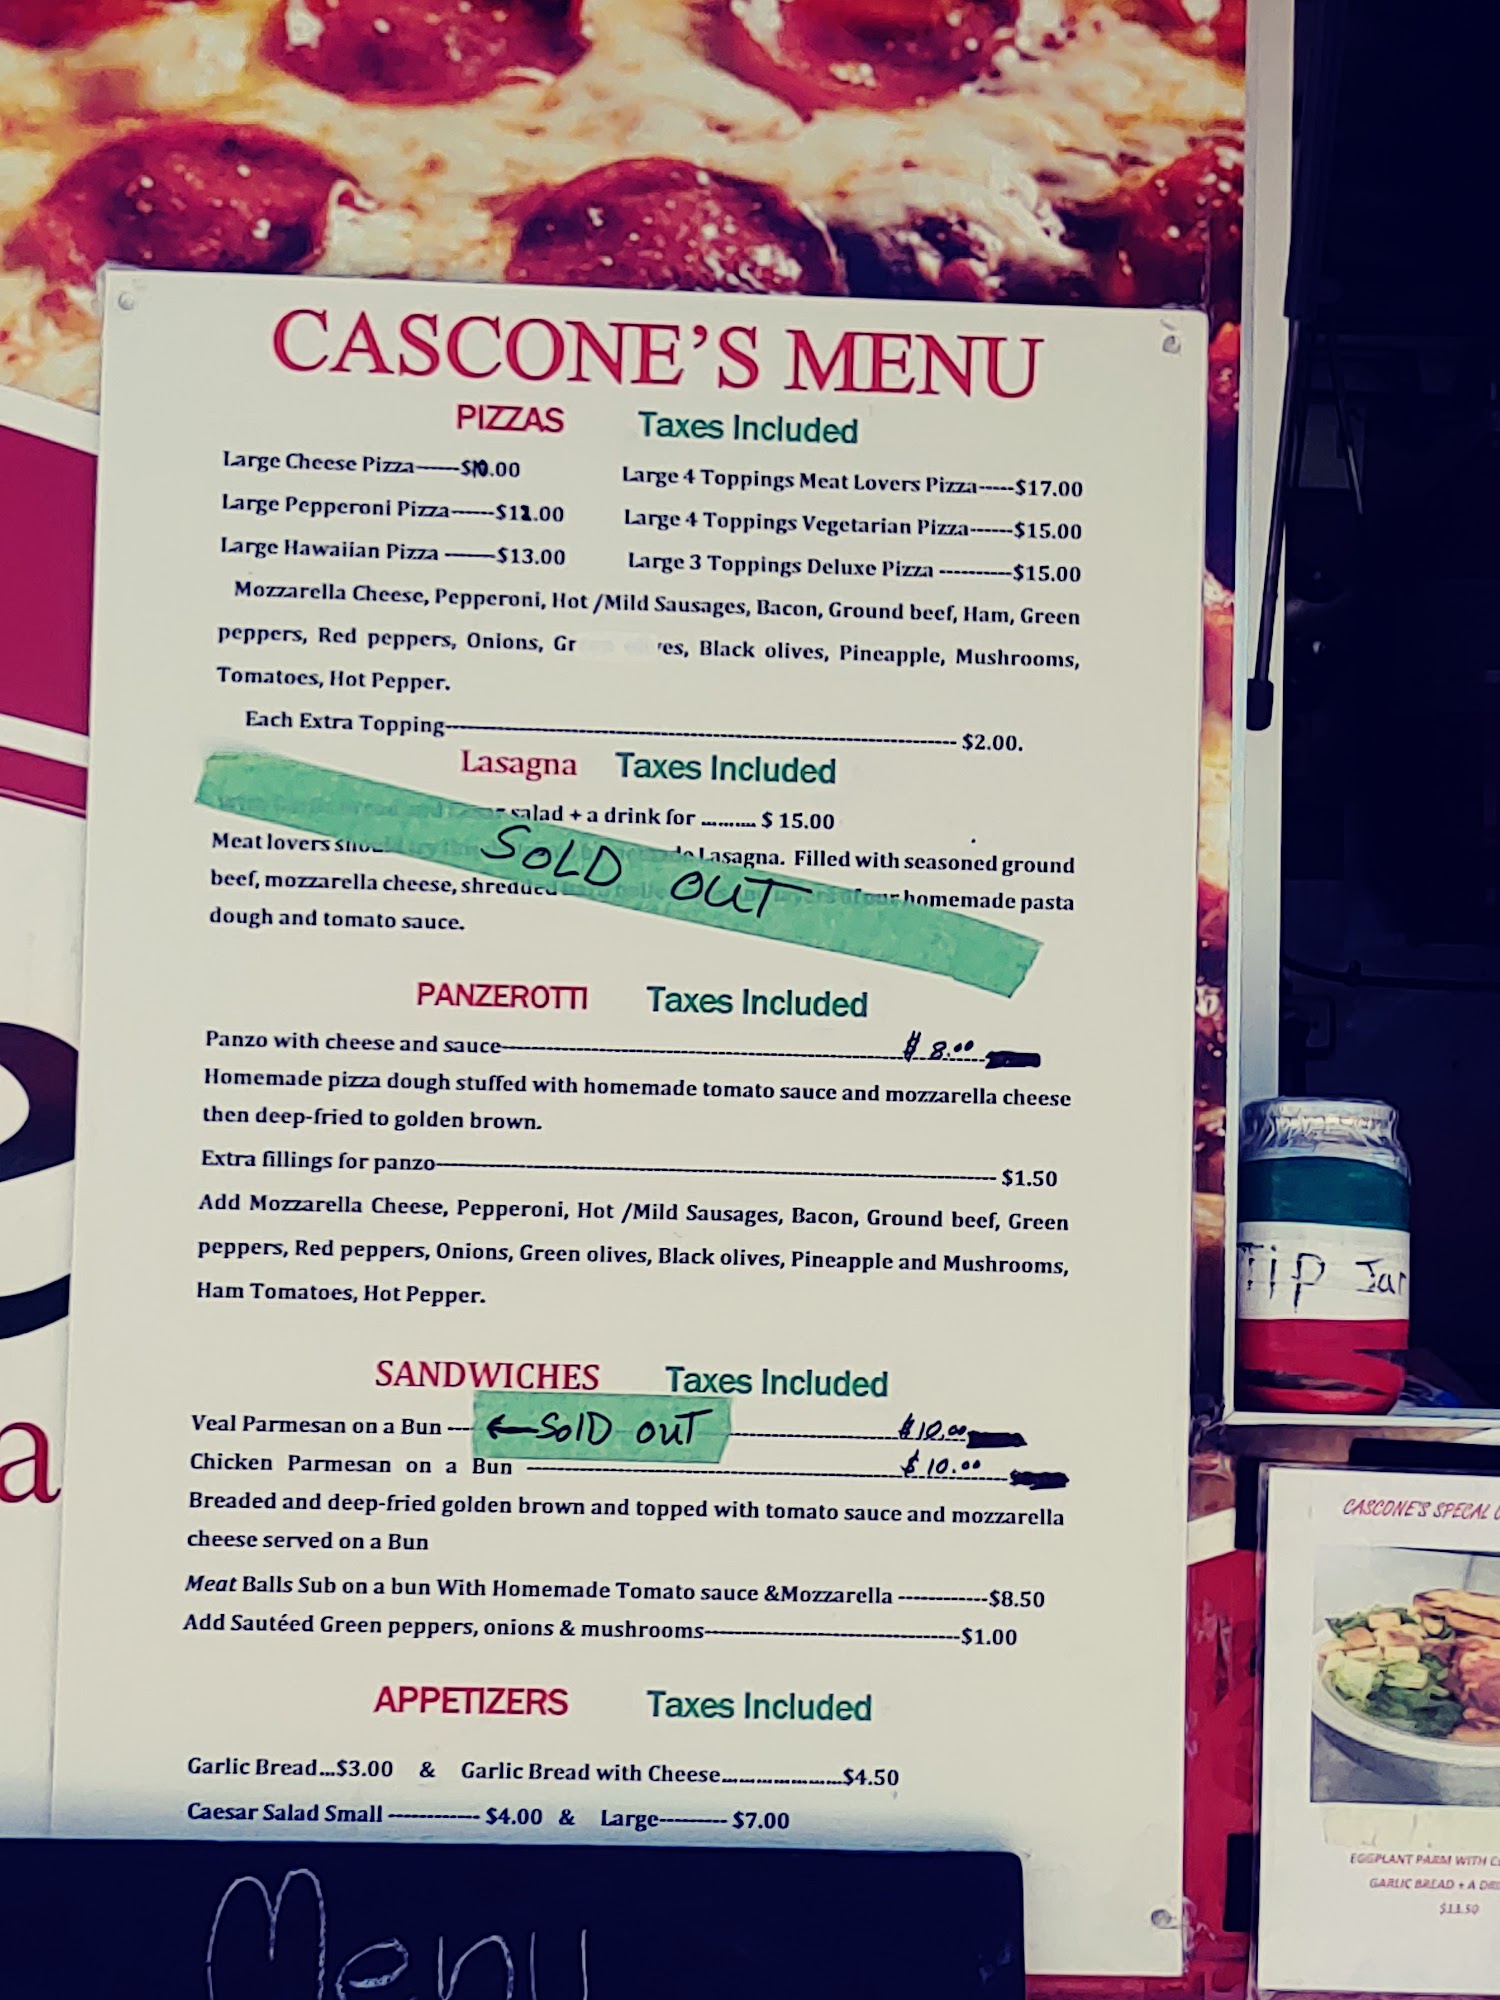 CASCONE'S MENU
PIZZAS Taxes Included
Large Cheese Pizza------$10.00 Large 4 Toppings Meat Lovers Pizza-----$17.00
Large Pepperoni Pizza------$12.00 Large 4 Toppings Vegetarian Pizza------$15.00
Large Hawaiian Pizza -------$13.00 Large 3 Toppings Deluxe Pizza ----------$15.00
Mozzarella Cheese, Pepperoni, Hot /Mild Sausages, Bacon, Ground beef, Ham, Green
peppers, Red peppers, Onions, Gr ves, Black olives, Pineapple, Mushrooms,
Tomatoes, Hot Pepper.
Each Extra Topping------------------------------------------------ $2.00.
Lasagna Taxes Included
salad + a drink for .......... $ 15.00
Meat lovers Lasagna. Filled with seasoned ground
SOLD OUT
beef, mozzarella cheese, shredded homemade pasta
dough and tomato sauce.
PANZEROTTI Taxes Included
Panzo with cheese and sauce------------------------------------ $ 8.00
Homemade pizza dough stuffed with homemade tomato sauce and mozzarella cheese
then deep-fried to golden brown.
Extra fillings for panzo------------------------------------------------ $1.50
Add Mozzarella Cheese, Pepperoni, Hot /Mild Sausages, Bacon, Ground beef, Green
peppers, Red peppers, Onions, Green olives, Black olives, Pineapple and Mushrooms,
Ham Tomatoes, Hot Pepper.
SANDWICHES Taxes Included
Veal Parmesan on a Bun --- ←SOlD OUT --------------- $10.00
Chicken Parmesan on a Bun ------------------------------------ $ 10.00
Breaded and deep-fried golden brown and topped with tomato sauce and mozzarella
cheese served on a Bun
Meat Balls Sub on a bun With Homemade Tomato sauce &Mozzarella ------------$8.50
Add Sautéed Green peppers, onions & mushrooms---------------------------$1.00
APPETIZERS Taxes Included
Garlic Bread...$3.00 & Garlic Bread with Cheese.......................$4.50
Caesar Salad Small ------------ $4.00 & Large--------- $7.00
Menu
a
Tip Jar
CASCONE'S SPECAL
EGGPLANT PARM WITH
GARLIC BREAD + A
$11.50